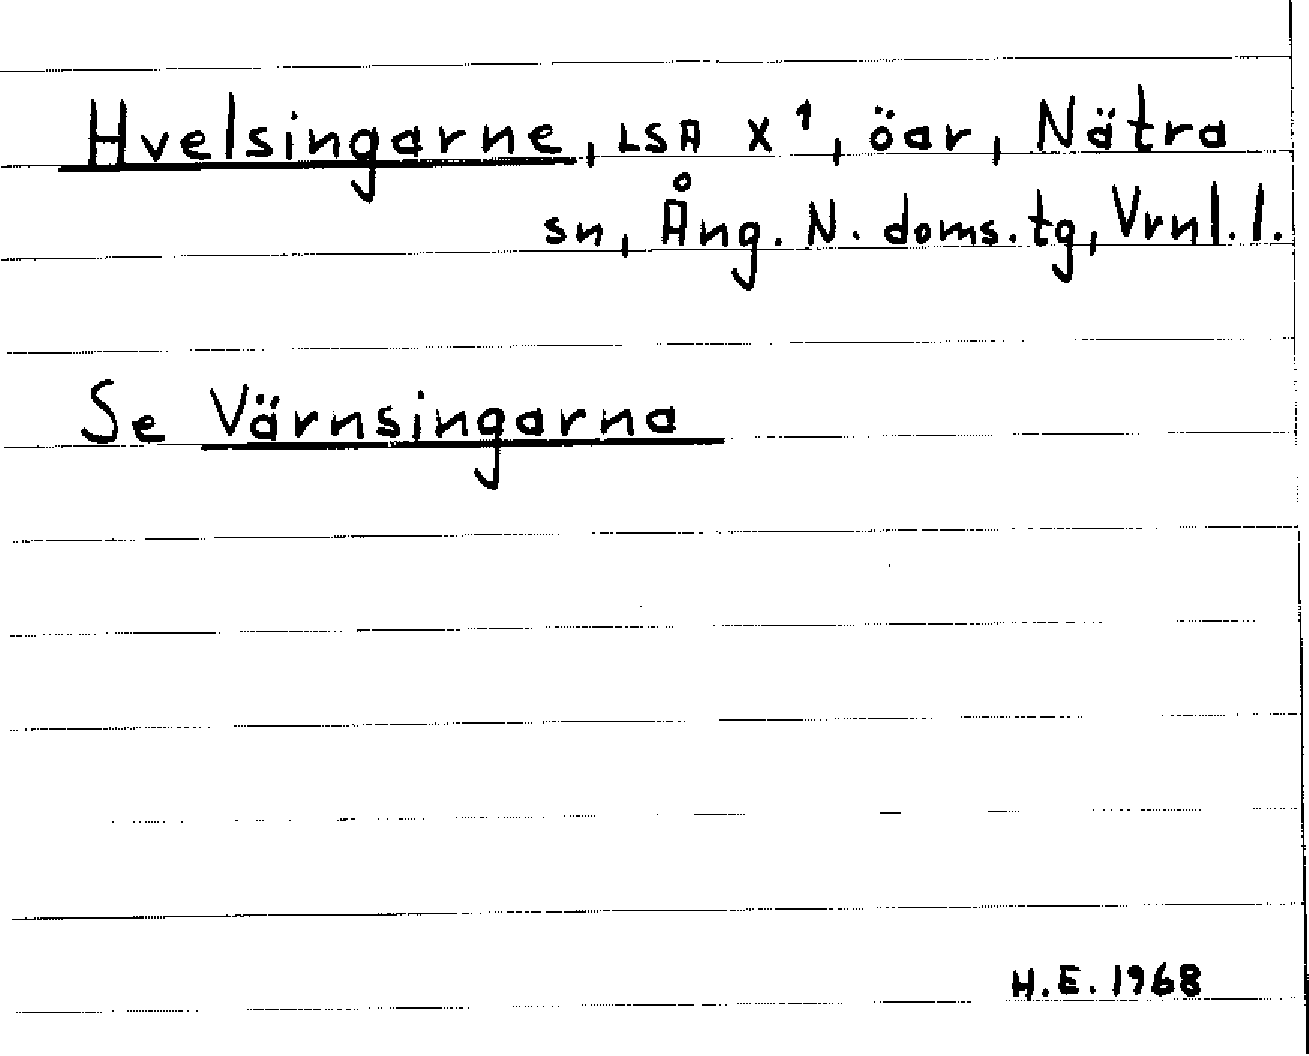 Hvelsingarne, LSA X¹, öar, Nätra
sn, Ång. N. doms. tg, Vrnl. l.
Se Värnsingarna
H.E. 1968